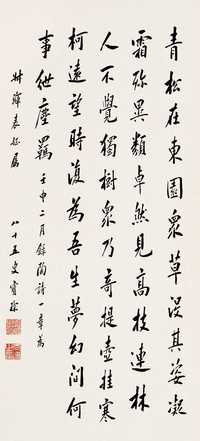 青松在東園衆草沒其姿凝
霜殄異類卓然見高枝連林
人不覺獨樹衆乃奇提壺挂寒
柯遠望時復為吾生夢幻間何
事紲塵羈 壬申二月錄陶詩一章為
屬 八十五叟寶琛